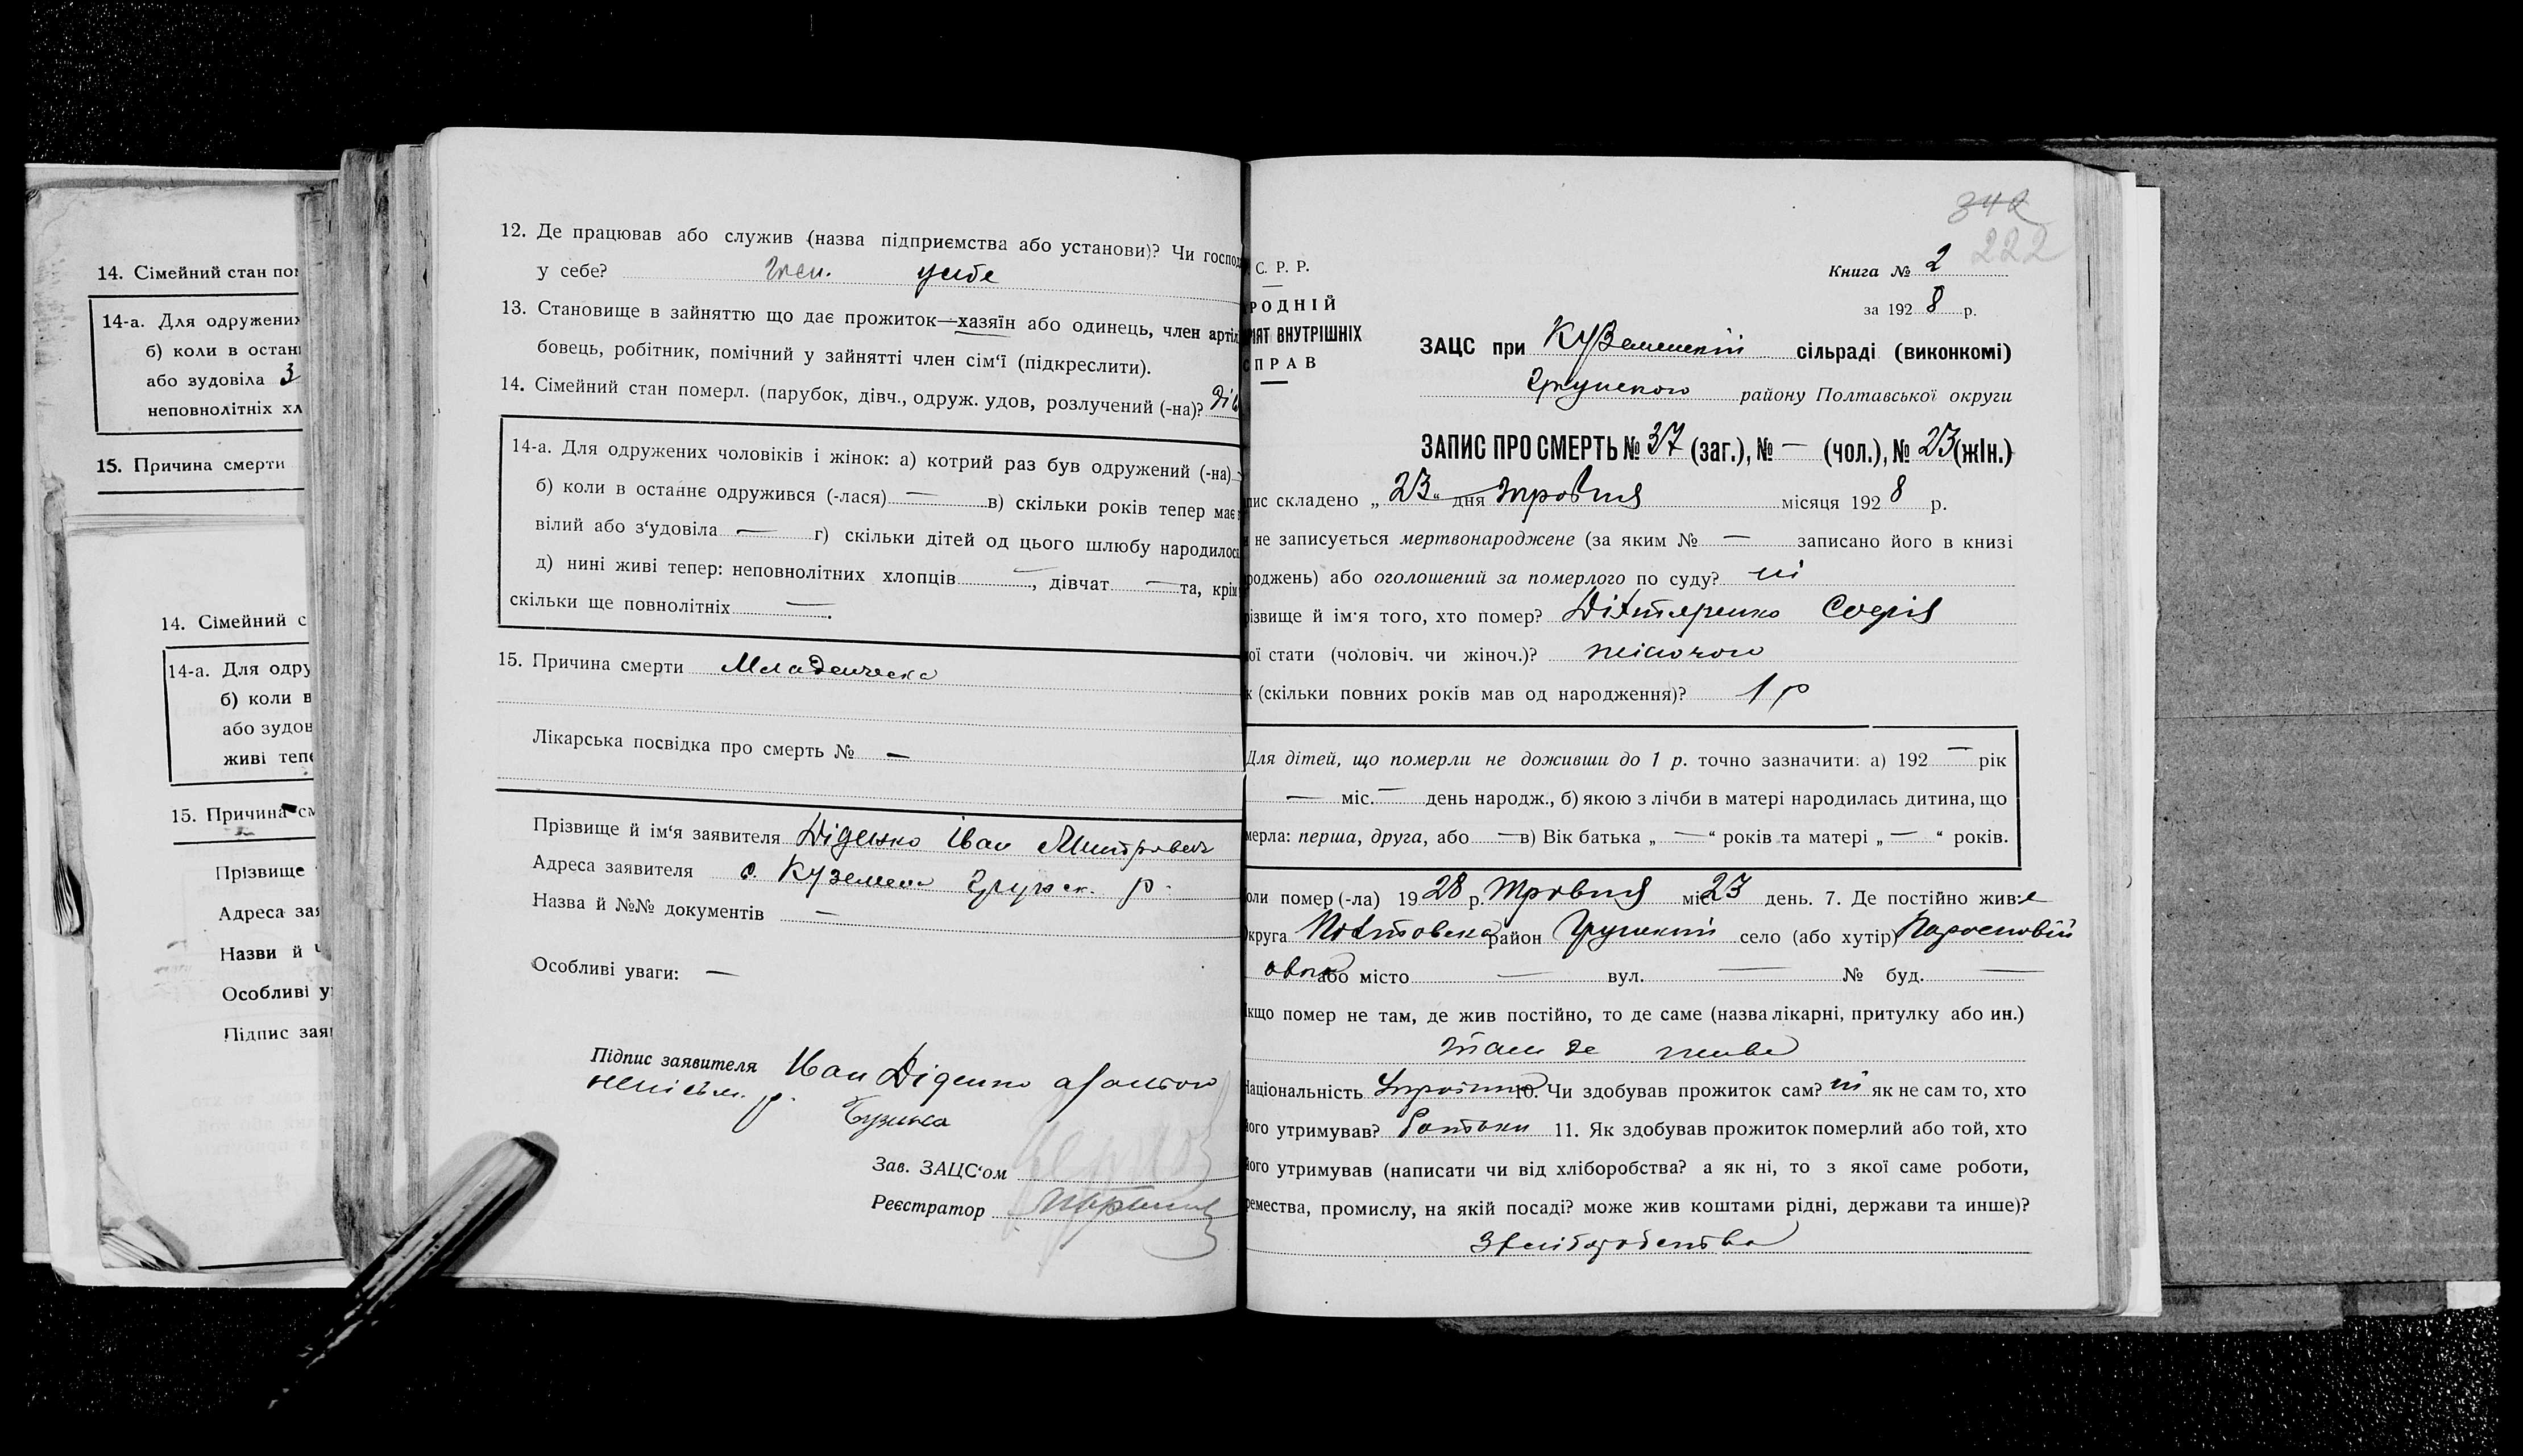 14. Сімейний стан пом
14-а. Для одружених
б) коли в остан
або зудовіла З
неповнолітніх хл
15. Причина смерти
14. Сімейний с
14-а. Для одру
б) коли в
або зудов
живі тепе
15. Причина см
Прізвище
Адреса зая
Назви й
Особливі у
Підпис зая
12. Де працював або служив (назва підприємства або установи)? Чи господ
у себе? у себе
13. Становище в зайняттю що дає прожиток—хазяїн або одинець, член артіл
бовець, робітник, помічний у зайнятті член сім'ї (підкреслити).
14. Сімейний стан померл. (парубок, дівч., одруж. удов, розлучений (-на)? дів
14-а. Для одружених чоловіків і жінок: а) котрий раз був одружений (-на)
б) коли в останнє одружився (-лася) — в) скільки років тепер має
вілий або з'удовіла — г) скільки дітей од цього шлюбу народилось
д) нині живі тепер: неповнолітних хлопців —, дівчат — та, крім
скільки ще повнолітніх —.
15. Причина смерти Младенческа
Лікарська посвідка про смерть № —
Прізвище й ім'я заявителя Діденко Іван Митрович
Адреса заявителя с. Куземени Грунск. р.
Назва й №№ документів —
Особливі уваги: —
Підпис заявителя Иван Діденко а за него
неписьм. р.
Зав. ЗАЦС'ом
Реєстратор
342
222
С. Р. Р.
Книга № 2
РОДНІЙ
за 1928 р.
ІЯТ ВНУТРІШНІХ
ЗАЦС при Куземенській сільраді (виконкомі)
СПРАВ
Грунського району Полтавської округи
ЗАПИС ПРО СМЕРТЬ № 37 (заг.), № — (чол.), № 23 (жін.)
пис складено „23" дня травня місяця 1928 р.
не записується мертвонароджене (за яким № — записано його в книзі
роджень) або оголошений за померлого по суду? ні
різвище й ім'я того, хто помер? Дігтяренко Софія
ої стати (чоловіч. чи жіноч.)? жіночої
к (скільки повних років мав од народження)? 1 р
Для дітей, що померли не доживши до 1 р. точно зазначити: а) 192 — рік
— міс. — день народж., б) якою з лічби в матері народилась дитина, що
мерла: перша, друга, або — в) Вік батька „ — " років та матері „ — " років.
оли помер (-ла) 1928 р. травня міс 23 день. 7. Де постійно жив:
круга Полтавська район Грунский село (або хутір)
або місто — вул. — № буд. —
кщо помер не там, де жив постійно, то де саме (назва лікарні, притулку або ин.)
там де живе
аціональність Українка 10. Чи здобував прожиток сам? ні як не сам то, хто
його утримував? батьки 11. Як здобував прожиток померлий або той, хто
його утримував (написати чи від хліборобства? а як ні, то з якої саме роботи,
ремества, промислу, на якій посаді? може жив коштами рідні, держави та инше)?
З хліборобства